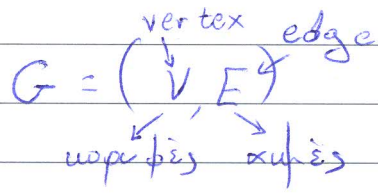 vertex edge
G = (V, E)
κορυφές ακμές